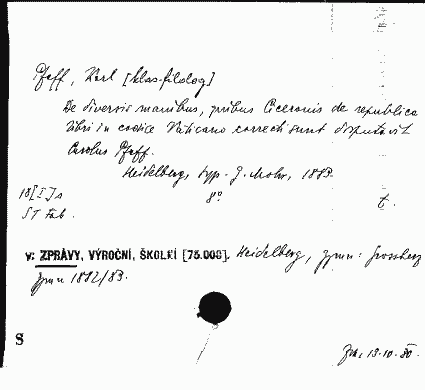 Pfaff, Karl [klas. filolog]
De diversis manibus, quibus Ciceronis de republica
libri in codice Vaticano correcti sunt disputavit
Carolus Pfaff.
Heidelberg, typ. J. Mohr, 1883.
8°
t.
ST tab.
v: ZPRÁVY, VÝROČNÍ, ŠKOLNÍ [75.000]. Heidelberg, gymn: Grossherz
gymn 1882/83.
S
13.10.80.